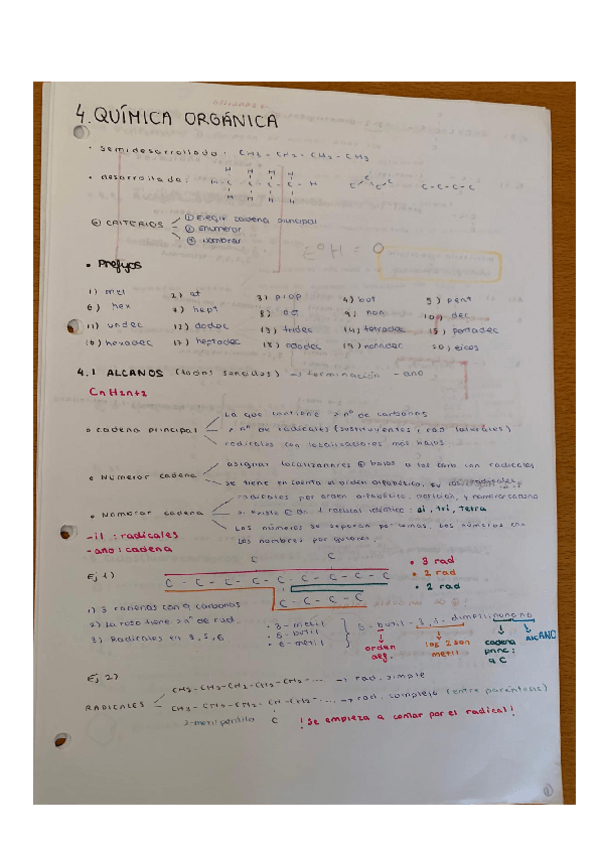 4. QUÍMICA ORGÁNICA
• semidesarrollada: CH3 - CH2 - CH2 - CH3
• desarrollada:
H H H H
H - C - C - C - C - H
H H H H
C - C - C - C
CRITERIOS
① Elegir cadena principal
② Enumerar
③ Nombrar
• Prefijos
1) met 2) et 3) prop 4) but 5) pent
6) hex 7) hept 8) oct 9) non 10) dec
11) undec 12) dodec 13) tridec 14) tetradec 15) pentadec
16) hexadec 17) heptadec 18) octadec 19) nonadec 20) eicos
4.1 ALCANOS (todos sencillos) → terminación -ano
CnH2n+2
cadena principal
La que contiene > nº de carbonos
> nº de radicales (sustituyentes, cad laterales)
radicales con localizadores más bajos
Numerar cadena
asignar localizadores bajos a los carb con radicales
se tiene en cuenta el orden alfabético
Nombrar cadena
radicales por orden alfabético, posición, y nombrar cadena
radical idéntico: di, tri, tetra
Los números se separan por comas. Los números con
los nombres por guiones.
-il: radicales
-ano: cadena
Ej 1)
C C
C - C - C - C - C - C - C - C - C
C - C - C - C
• 3 rad
• 2 rad
• 2 rad
1) 3 cadenas con 9 carbonos
2) La rosa tiene > nº de rad.
3) Radicales en 3, 5, 6
• 3-metil
• 5-butil
• 6-metil
5-butil - dimetil nonano
orden alf.
los 2 son metil
cadena princ: 9 C
alcANO
Ej 2)
RADICALES
CH3-CH2-CH2-CH2-CH2-... → rad. simple
→ rad. complejo (entre paréntesis)
C
¡Se empieza a contar por el radical!
1